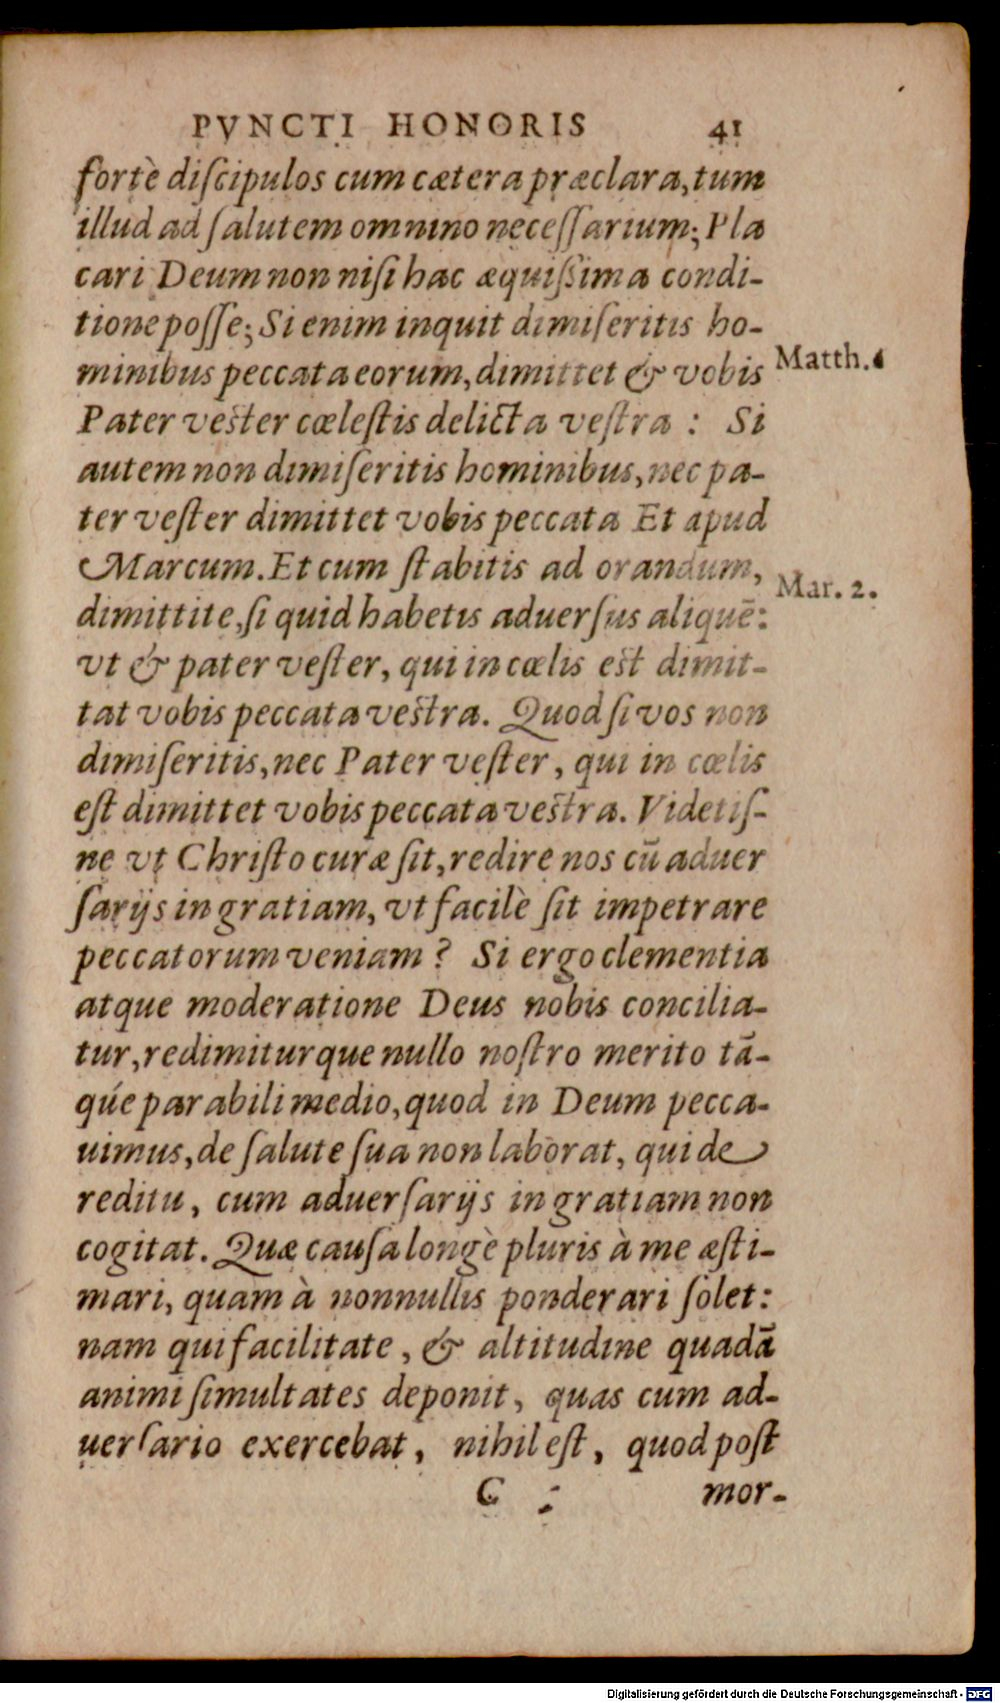 PVNCTI HONORIS 41
fortè diſcipulos cum cætera præclara, tum
illud ad ſalutem omnino neceſſarium; Pla
cari Deum non niſi hac æquißima condi-
tione poſſe; Si enim inquit dimiſeritis ho-
minibus peccata eorum, dimittet & vobis
Matth. 6
Pater veſter cœleſtis delicta veſtra : Si
autem non dimiſeritis hominibus, nec pa-
ter veſter dimittet vobis peccata Et apud
Marcum. Et cum ſtabitis ad orandum,
Mar. 2.
dimittite, ſi quid habetis aduerſus aliquē:
vt & pater veſter, qui in cœlis eſt dimit-
tat vobis peccata veſtra. Quod ſi vos non
dimiſeritis, nec Pater veſter, qui in cœlis
eſt dimittet vobis peccata veſtra. Videtiſ-
ne vt Chriſto curæ ſit, redire nos cū aduer
ſarijs in gratiam, vt facilè ſit impetrare
peccatorum veniam? Si ergo clementia
atque moderatione Deus nobis concilia-
tur, redimiturque nullo noſtro merito tā-
qúe parabili medio, quod in Deum pecca-
uimus, de ſalute ſua non laborat, qui de
reditu, cum aduerſarijs in gratiam non
cogitat. Quæ cauſa longè pluris à me æſti-
mari, quam à nonnullis ponderari ſolet:
nam qui facilitate, & altitudine quadā
animi ſimultates deponit, quas cum ad-
uerſario exercebat, nihil eſt, quod poſt
C mor-
Digitalisierung gefördert durch die Deutsche Forschungsgemeinschaft - DFG